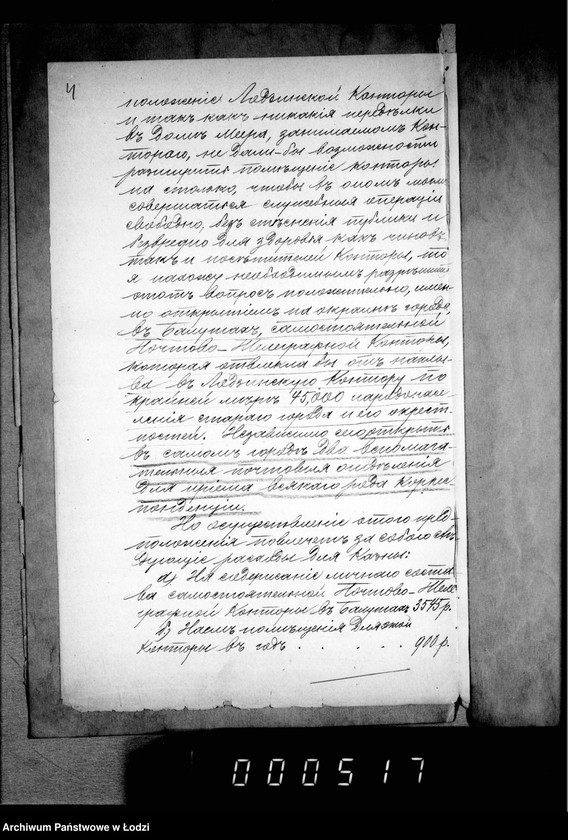 4
положеніе Лодзинской Конторы
и такъ какъ никакія передѣлки
въ домѣ Меера, занимаемомъ Кон-
торою, не дали-бы возможности
расширить помѣщеніе конторы
на столько, чтобы въ ономъ могли
совершаться служебныя операціи
свободно, безъ стѣсненія публики и
безвредно для здоровья какъ чиновъ
такъ и посѣтителей Конторы, то
я нахожу необходимымъ разрѣшить
этотъ вопросъ положительно, имен-
но открытіемъ на окраинѣ города,
въ Балутахъ, самостоятельной
Почтово-Телеграфной Конторы,
которая отвлекла бы отъ наплы-
ва въ Лодзинскую Контору по
крайней мѣрѣ 45,000 народонасе-
ленія стараго города и его окрест-
ностей. Независимо сего открыть
въ самомъ городѣ два вспомога-
тельныя почтовыя отдѣленія
для пріема всякаго рода Коррес-
понденціи.
Но осуществленіе этого пред-
положенія повлечетъ за собою слѣ-
дующіе расходы для Казны:
а) На содержаніе личнаго соста-
ва самостоятельной Почтово-Теле-
графной Конторы въ Балутахъ 3545 р.
б) Наемъ помѣщенія для этой
Конторы въ годъ . . . . . 900 р.
000517
Archiwum Państwowe w Łodzi